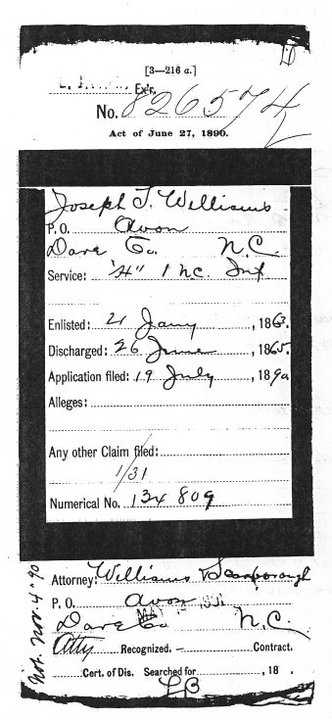 [3—216 a.]
Ex'r.
No. 826574
Act of June 27, 1890.
Joseph T. Williams
P. O. Avon
Dare Co. N.C.
Service: "H" 1 N.C. Inf
Enlisted: 21 Jany, 1863.
Discharged: 26 June, 1865.
Application filed: 19 July, 1890
Alleges:
Any other Claim filed:
1/31
Numerical No. 134 809
Attorney: Williams Scarborough
P. O. Avon
Dare Co N.C.
Atty Recognized. — Contract.
Cert. of Dis. Searched for , 18 .
LB
Not. Nov. 4" 90